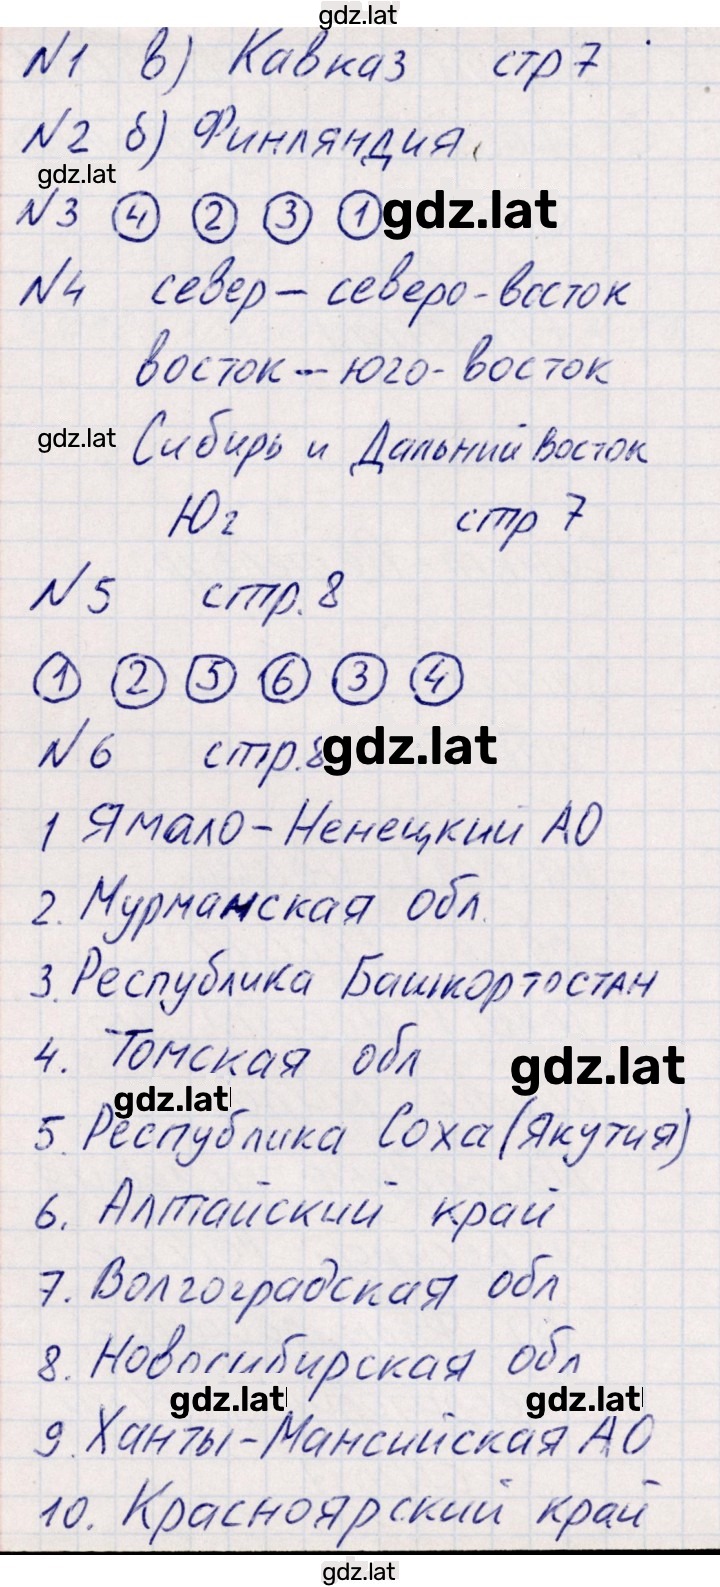 gdz.lat
N1 в) Кавказ стр 7
N2 б) Финляндия
gdz.lat
N3 4 2 3 1 gdz.lat
N4 север – северо-восток
восток – юго-восток
gdz.lat Сибирь и Дальний Восток
Юг стр 7
N5 стр. 8
1 2 5 6 3 4
N6 стр. 8 gdz.lat
1 Ямало-Ненецкий АО
2. Мурманская обл.
3. Республика Башкортостан
4. Томская обл gdz.lat
gdz.lat
5. Республика Соха (Якутия)
6. Алтайский край
7. Волгоградская обл
8. Новосибирская обл
gdz.lat gdz.lat
9. Ханты-Мансийская АО
10. Красноярский край
gdz.lat